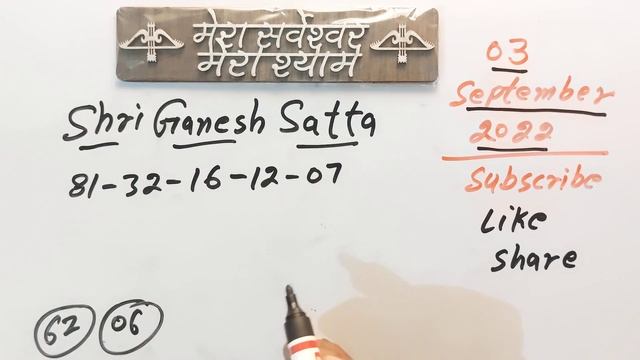 मेरा सर्वेश्वर
मेरा श्याम
03
September
2022
Shri Ganesh Satta
81-32-16-12-07
Subscribe
Like
Share
62 06